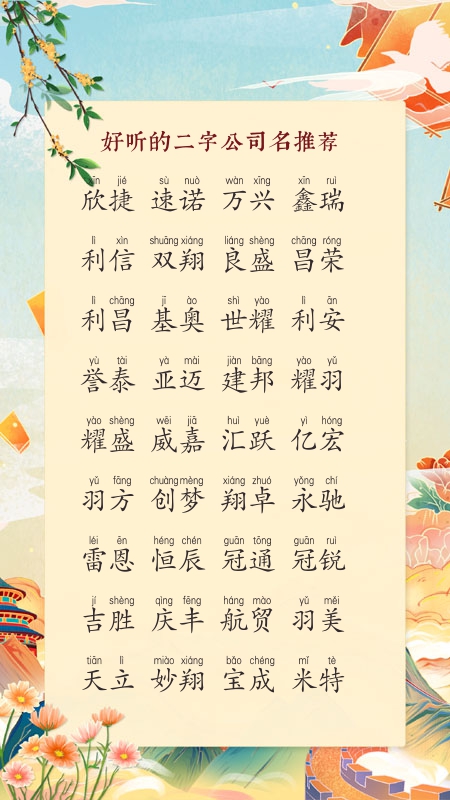 好听的二字公司名推荐
xīn jié sù nuò wàn xīng xīn ruì
欣捷 速诺 万兴 鑫瑞
lì xìn shuāng xiáng liáng shèng chāng róng
利信 双翔 良盛 昌荣
lì chāng jī ào shì yào lì ān
利昌 基奥 世耀 利安
yù tài yà mài jiàn bāng yào yǔ
誉泰 亚迈 建邦 耀羽
yào shèng wēi jiā huì yuè yì hóng
耀盛 威嘉 汇跃 亿宏
yǔ fāng chuàng mèng xiáng zhuó yǒng chí
羽方 创梦 翔卓 永驰
léi ēn héng chén guān tōng guān ruì
雷恩 恒辰 冠通 冠锐
jí shèng qìng fēng háng mào yǔ měi
吉胜 庆丰 航贸 羽美
tiān lì miào xiáng bǎo chéng mǐ tè
天立 妙翔 宝成 米特